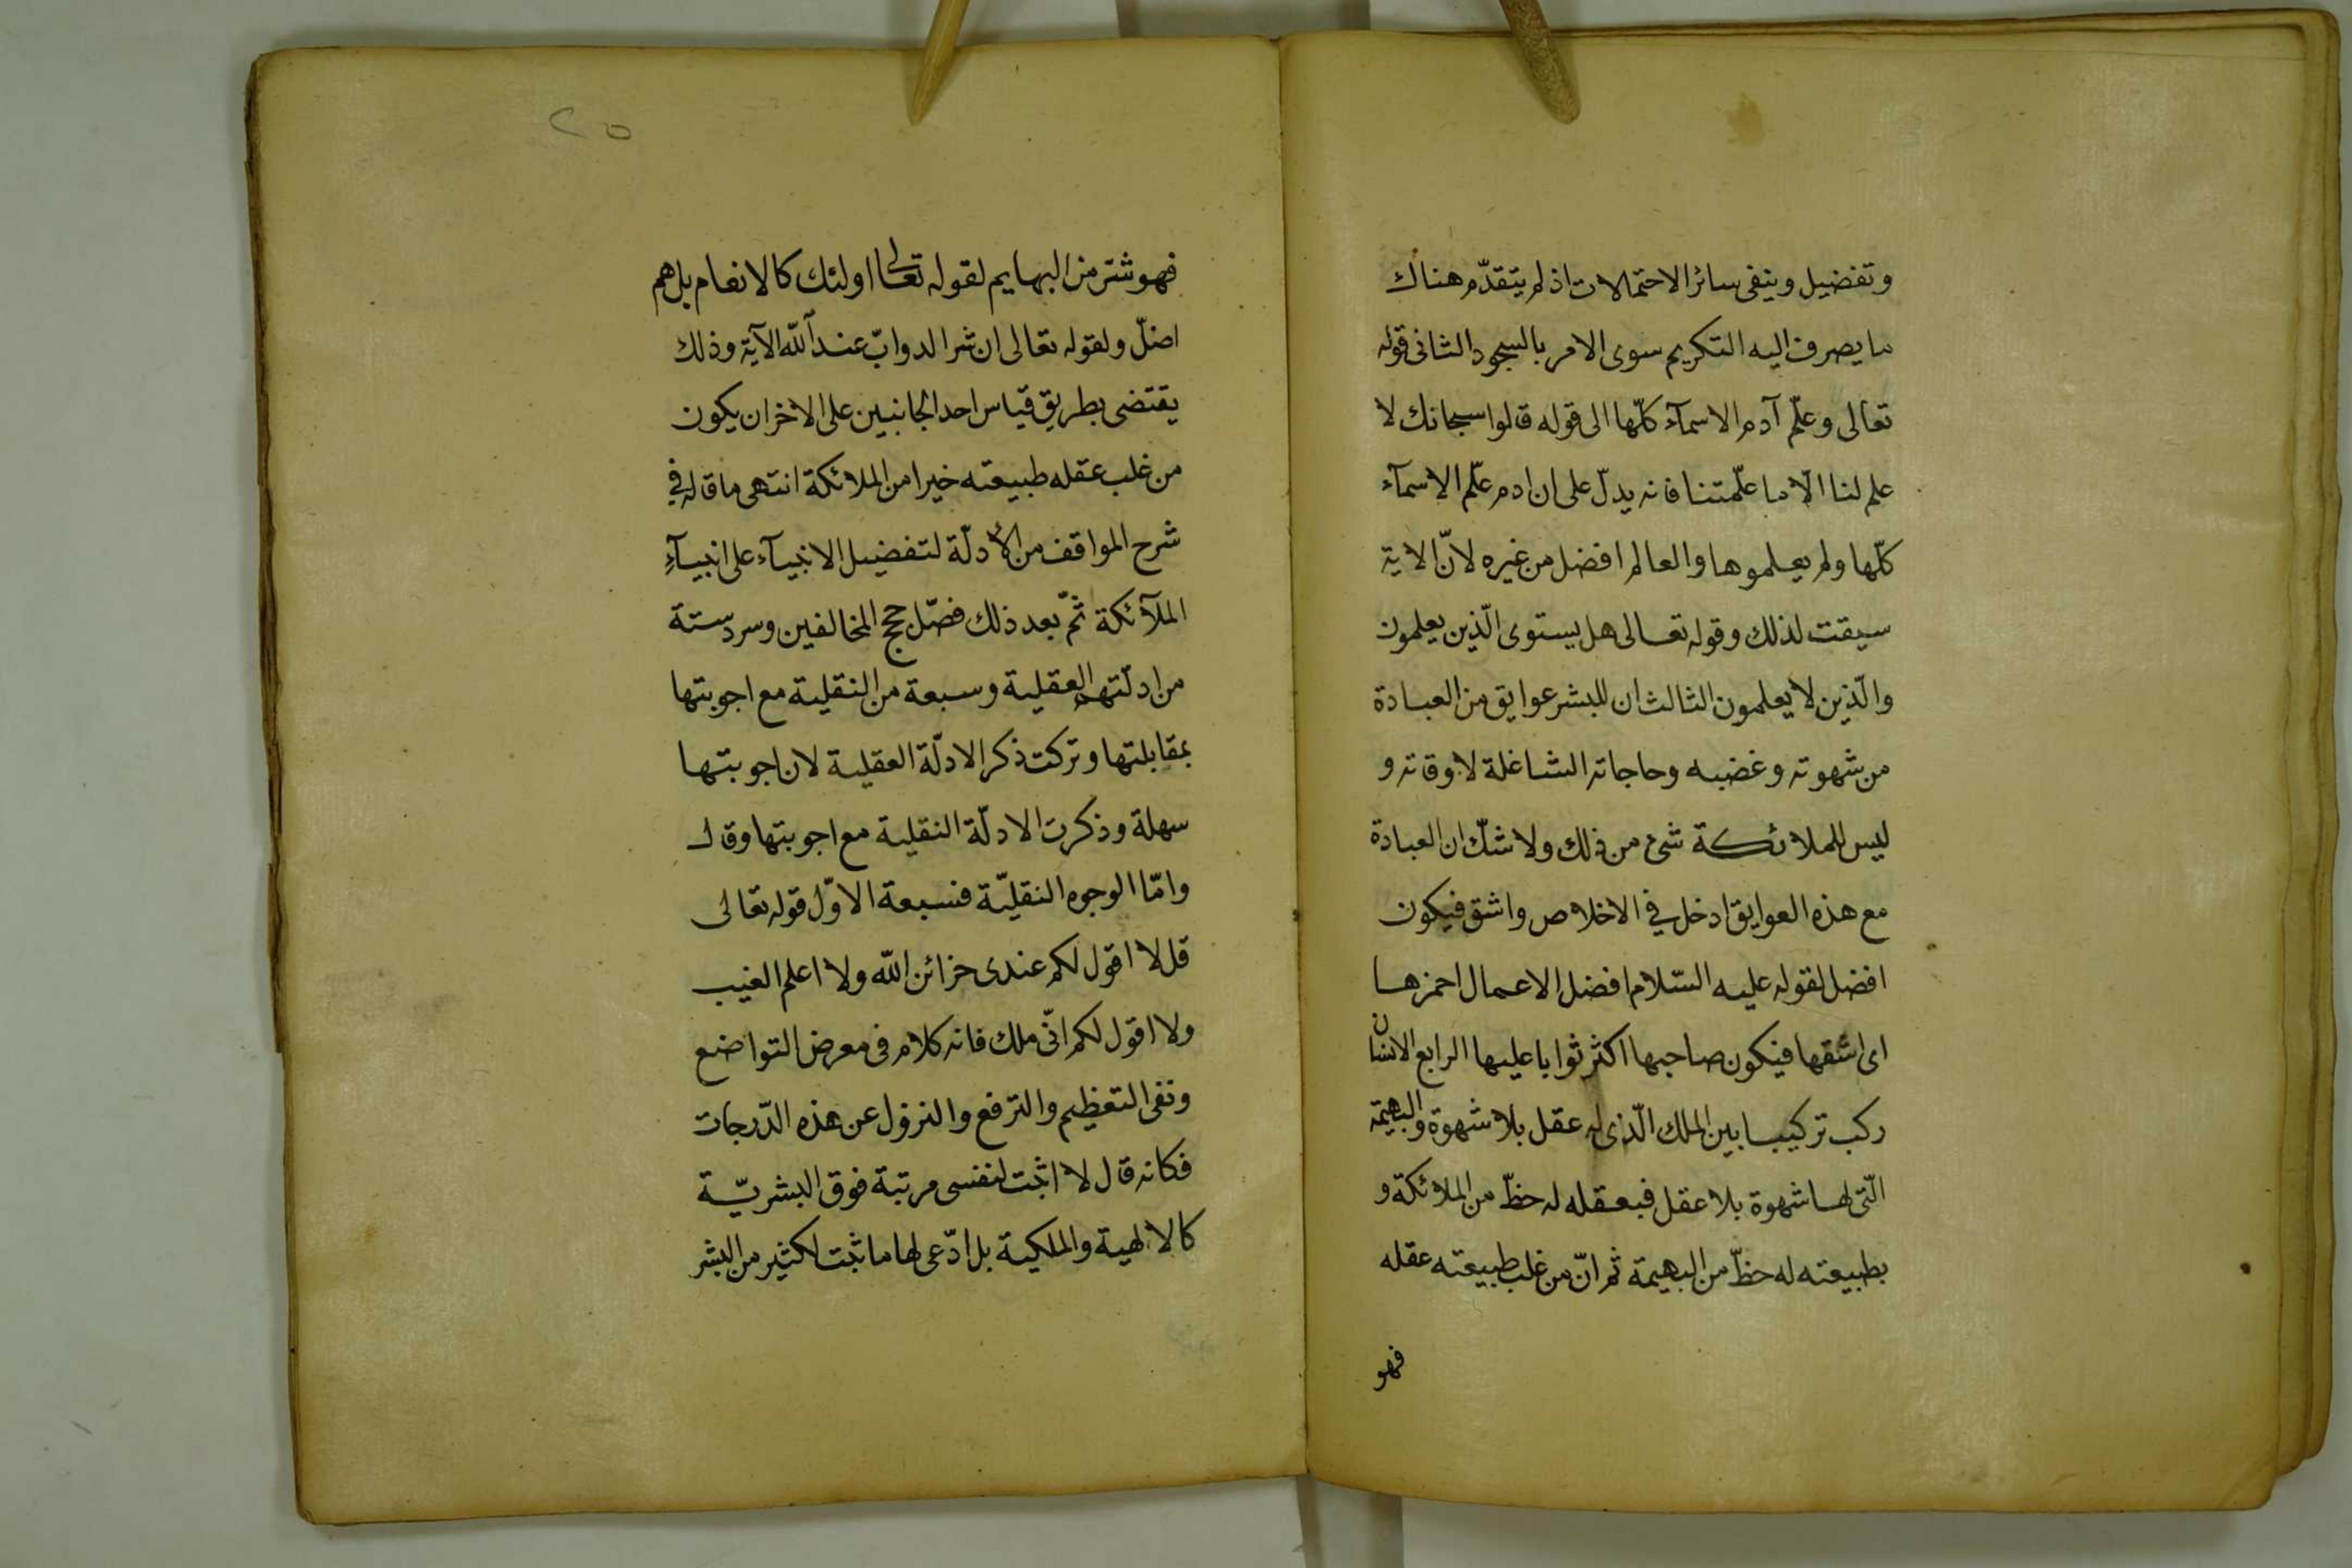 وتفضيل وينفى سائر الاحتمالات اذ لم يتقدّم هناك
ما يصرف اليه التكريم سوى الامر بالسجود الثانى قوله
تعالى وعلّم آدم الاسمآء كلّها الى قوله قالوا سبحانك لا
علم لنا الّا ما علّمتنا فانه يدلّ على ان ادم علّم الاسمآء
كلّها ولم يعلموها والعالم افضل من غيره لانّ الاية
سيقت لذلك وقوله تعالى هل يستوى الّذين يعلمون
والّذين لا يعلمون الثالث ان للبشر عوايق من العبادة
من شهوته وغضبه وحاجاته الشاغلة لاوقاته و
ليس للملائكة شئ من ذلك ولا شكّ ان العبادة
مع هذه العوايق ادخل في الاخلاص واشق فيكون
افضل لقوله عليه السّلام افضل الاعمال احمزها
اى اشقها فيكون صاحبها اكثر ثوابا عليها الرابع الانسان
ركب تركيبا بين الملك الّذى له عقل بلا شهوة والبهيمة
الّتى لها شهوة بلا عقل فبعقله له حظّ من الملائكة و
بطبيعته له حظّ من البهيمة ثم انّ من غلب طبيعته عقله
فهو
٢٥
فهو شتر من البهايم لقوله تعالى اولئك كالانعام بل هم
اضلّ ولقوله تعالى ان شر الدوابّ عند اللّه الآية وذلك
يقتضى بطريق قياس احد الجانبين على الاخر ان يكون
من غلب عقله طبيعته خيرا من الملائكة انتهى ما قاله في
شرح المواقف من الأدلّة لتفضيل الانبيآء على انبيآء
الملآئكة ثمّ بعد ذلك فصّل حجج المخالفين وسرد ستة
من ادلّتهم العقلية وسبعة من النقلية مع اجوبتها
بمقابلتها وتركت ذكر الادلّة العقلية لان اجوبتها
سهلة وذكرت الادلّة النقلية مع اجوبتها وقال
وامّا الوجوه النقليّة فسبعة الاوّل قوله تعالى
قل لا اقول لكم عندى خزائن اللّه ولا اعلم الغيب
ولا اقول لكم انّى ملك فانه كلام فى معرض التواضع
ونفى التعظيم والترفع والنزول عن هذه الدّرجات
فكانه قال لا اثبت لنفسى مرتبة فوق البشريّة
كالالهية والملكية بل ادّعى لها ما ثبت لكثير من البشر